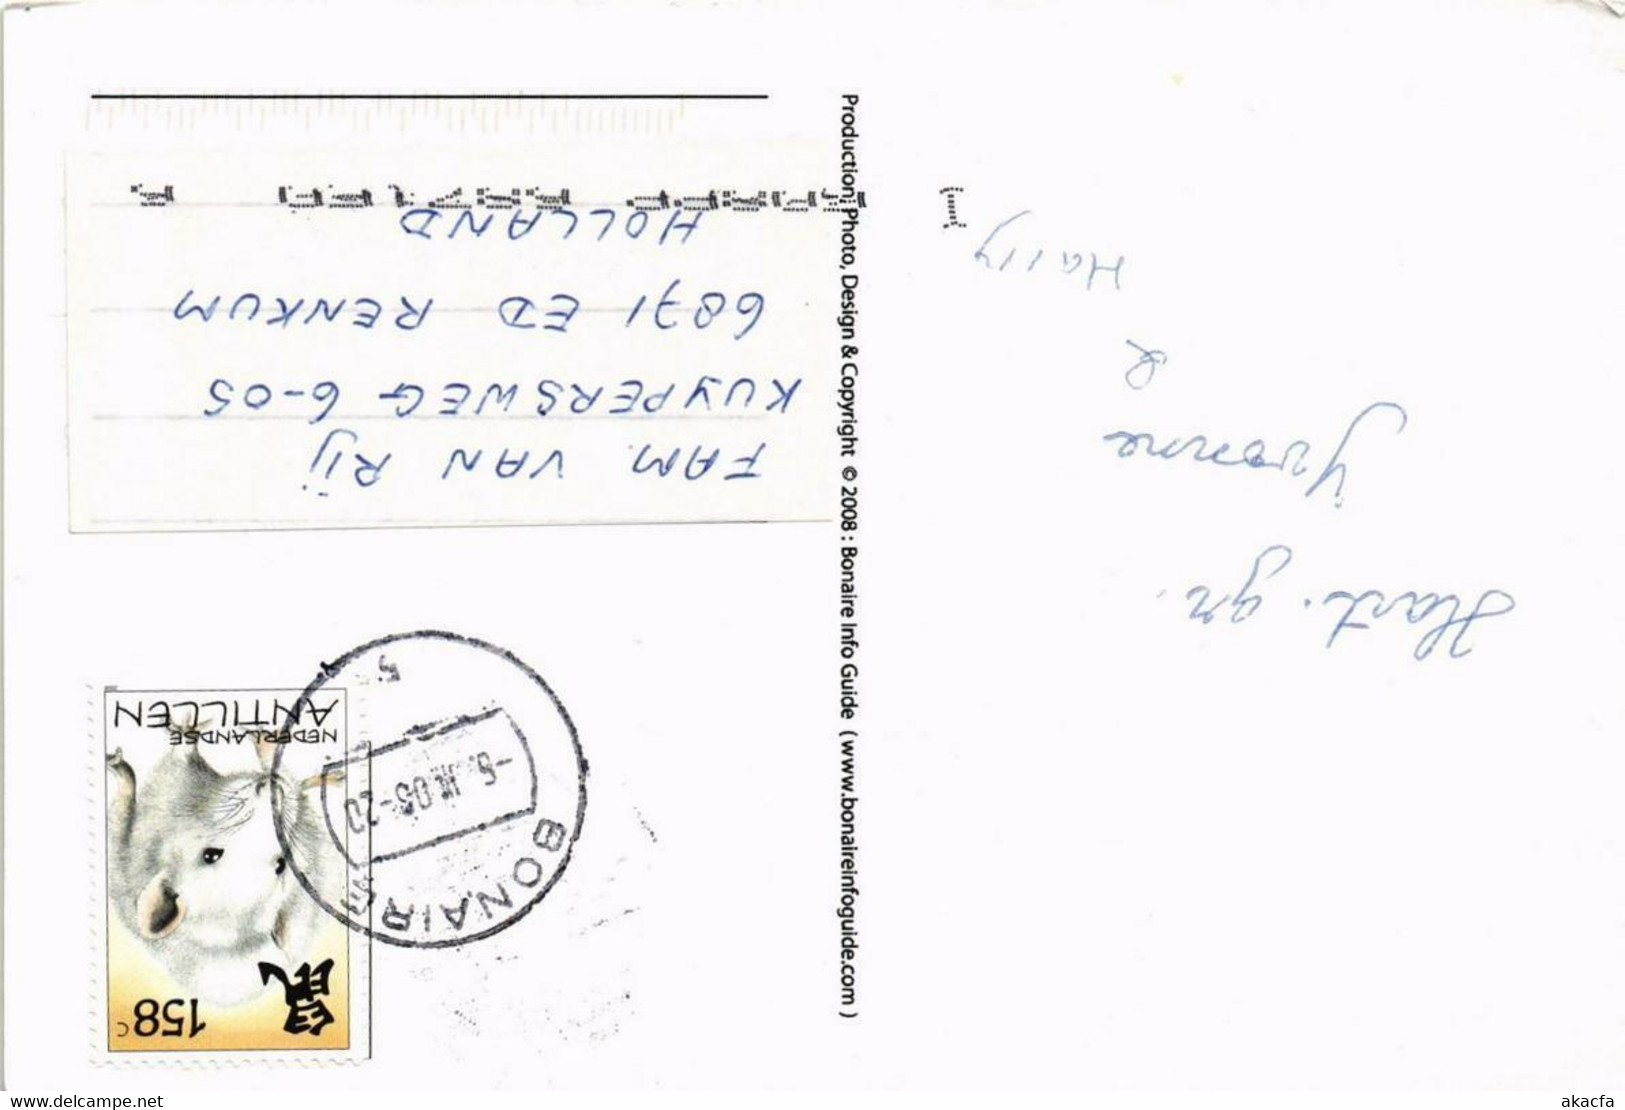 Hart. gr.
Yvonne
&
Harry
Production, Photo, Design & Copyright © 2008 : Bonaire Info Guide ( www.bonaireinfoguide.com )
158c
鼠
NEDERLANDSE
ANTILLEN
BONAIRE
5
FAM. VAN RIJ
KUYPERSWEG 6-05
6871 ED RENKUM
HOLLAND
www.delcampe.net
akacfa